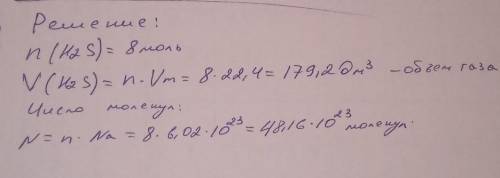 Решение:
n (H2S) = 8 моль
V (H2S) = n · Vm = 8 · 22,4 = 179,2 дм³ – объем газа
Число молекул:
N = n · Na = 8 · 6,02 · 10²³ = 48,16 · 10²³ молекул.